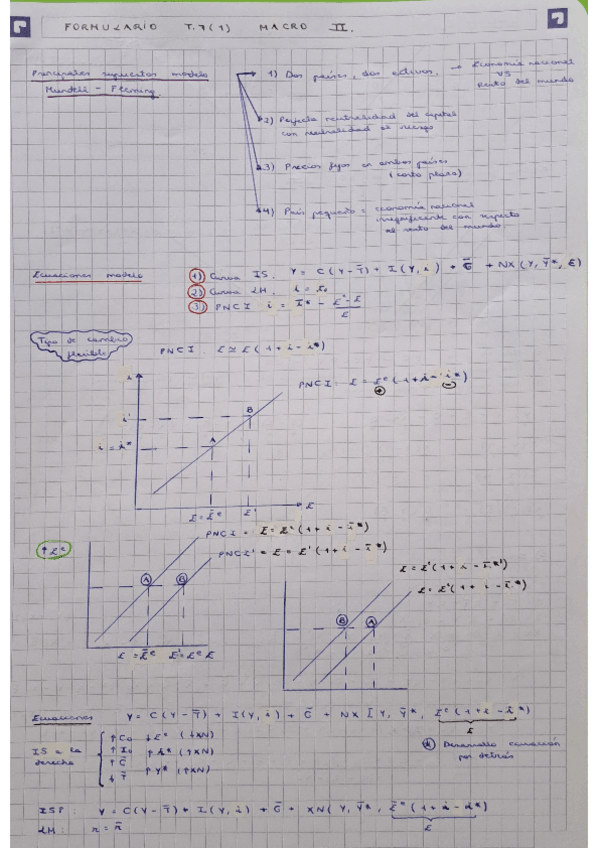 FORMULARIO T.7(1) MACRO II.
Principales supuestos modelo
Mundell - Fleming.
1) Dos países, dos activos. → Economía nacional
VS
resto del mundo
2) Perfecta neutralidad del capital
con neutralidad al riesgo
3) Precios fijos en ambos países
(corto plazo)
4) País pequeño = economía nacional
insignificante con respecto
al resto del mundo.
Ecuaciones modelo
1) Curva IS. Y = C(Y-T̄) + I(Y,i) + Ḡ + NX(Y, Ȳ*, E)
2) Curva LM. i = ī₀
3) PNCI i = I* - (E^e - E)/E
Tipo de cambio
flexible
PNCI: E ≃ E(1+i-i*)
PNCI: E = E^e(1+i-i*)
i
i'
i = i*
A
B
E = Ē^e
E'
E
↑E^e
PNCI = E = E^e(1+i-ī*)
PNCI' = E = E'(1+i-ī*)
A
B
E = Ē^e
E' = E^e
E
E = E^e(1+i-ī*')
E = E^e(1+i-ī*)
B
A
Ecuaciones
Y = C(Y-T̄) + I(Y,i) + Ḡ + NX[Y, Ȳ*, E^e(1+i-ī*)
E
IS a la
derecha
↑C₀ ↓E^e (↓XN)
↑I₀ ↑i* (↑XN)
↑Ḡ ↑Y* (↑XN)
↓T̄
* Desarrollo ecuación
por detrás
ISP: Y = C(Y-T̄) + I(Y,i) + Ḡ + XN(Y, Ȳ*, Ē^e(1+i-i*)
E
LM: r = r̄